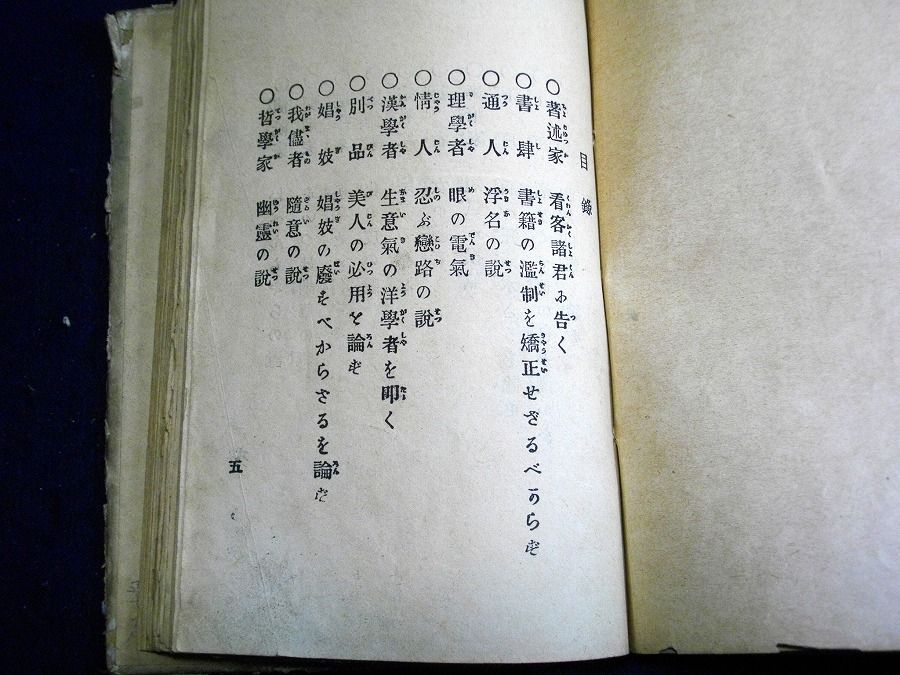 目錄
○著述家 看客諸君に告く
○書肆 書籍の濫制を矯正せざるべからず
○通人 浮名の說
○理學者 眼の電氣
○情人 忍ぶ戀路の說
○漢學者 生意氣の洋學者を叩く
○別品 美人の必用を論ず
○娼妓 娼妓の廢をべからさるを論ず
○我儘者 隨意の說
○哲學家 幽靈の說
五